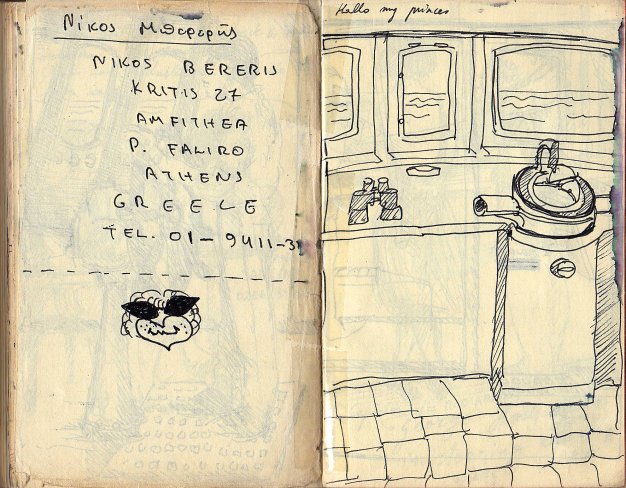 Νίκος Μπερερής
NIKOS BERERIS
KRITIS 27
AMFITHEA
P. FALIRO
ATHENS
GREECE
TEL. 01-9411-3
Hallo my princes